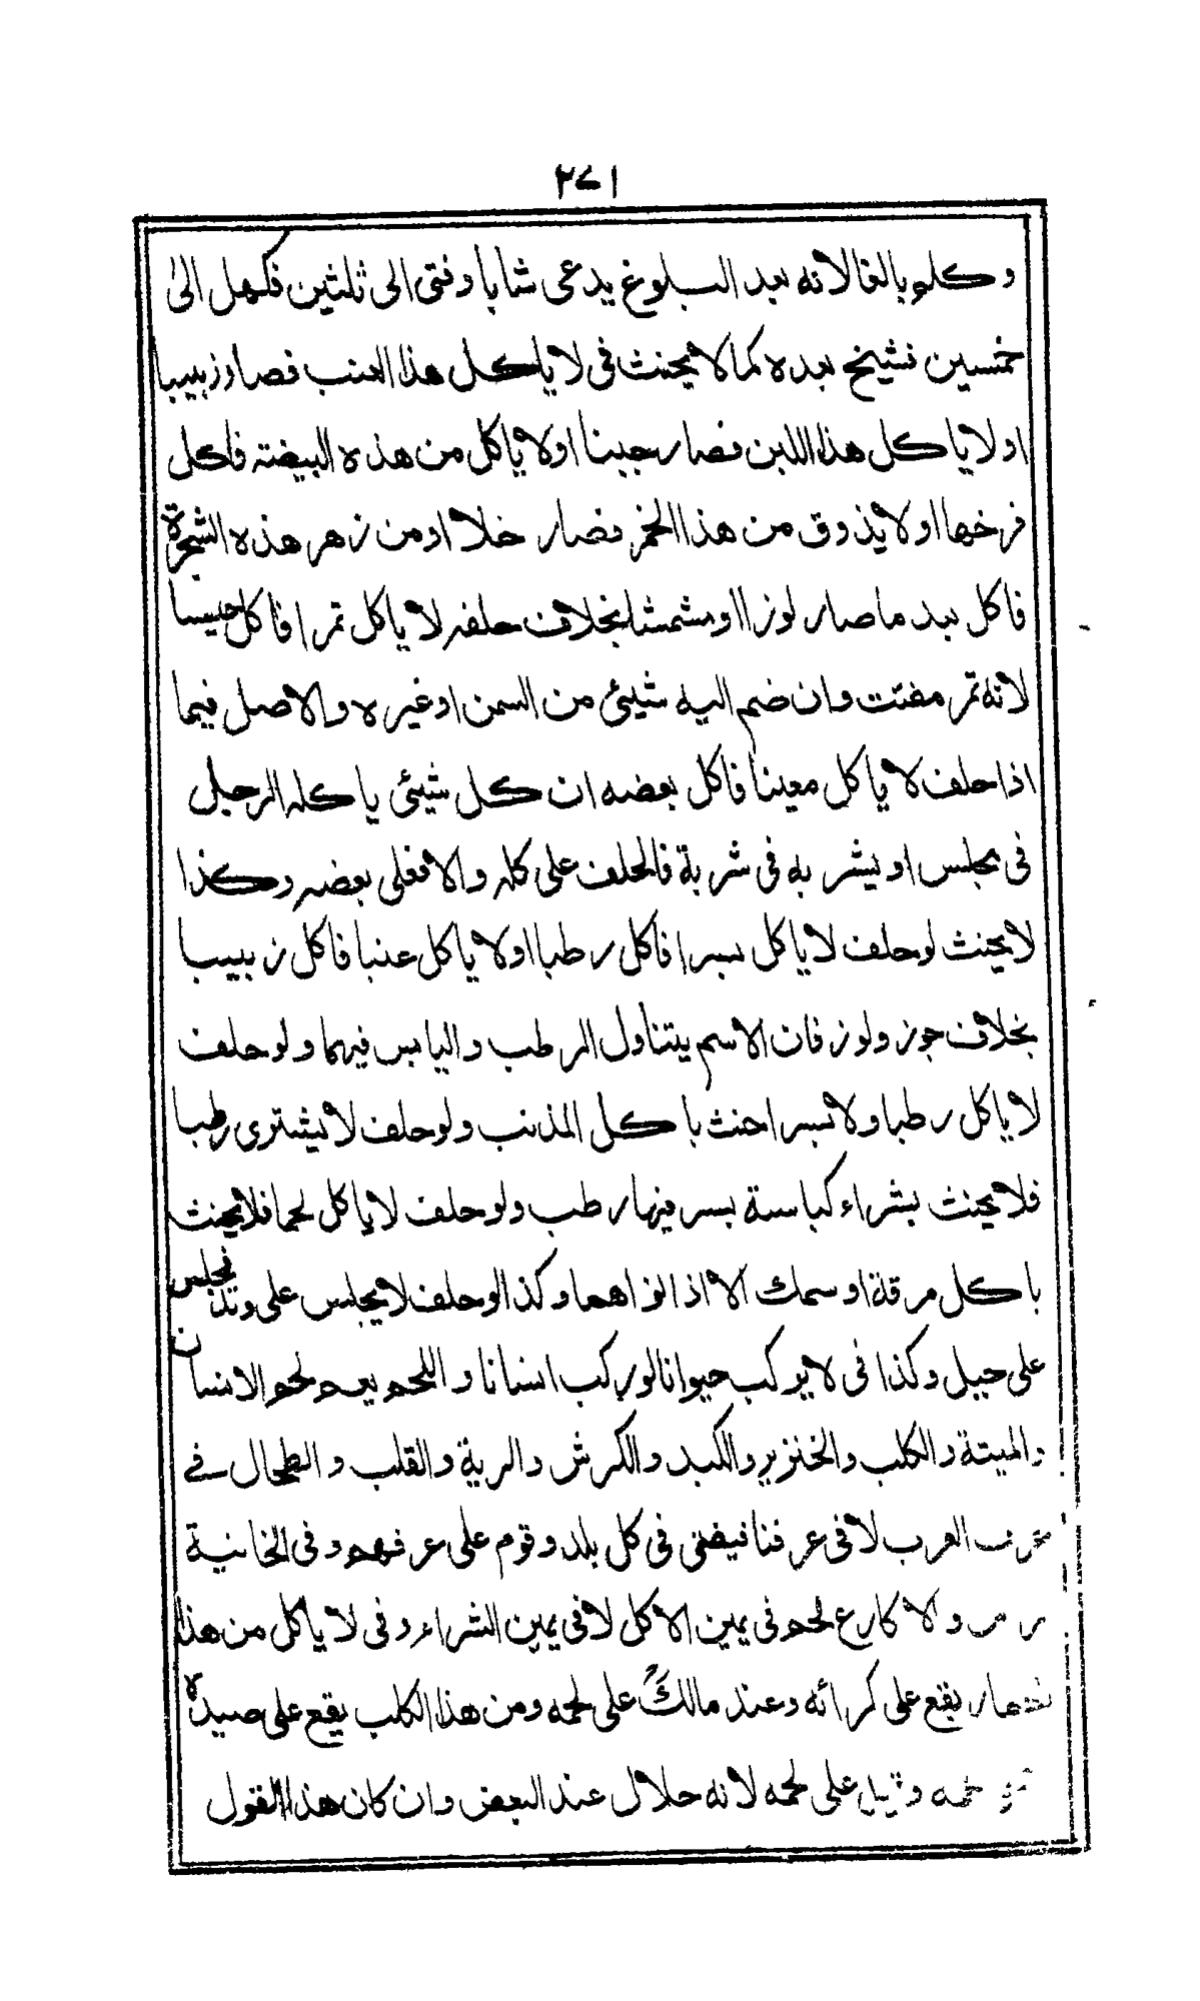 ٢٧١
وكلم بالغا لانه بعد البلوغ يدعى شابا وفتى الى ثلثين فكهل الى
خمسين فشيخ بعده كما لا يحنث فى لا ياكل هذا العنب فصار زبيبا
او لا ياكل هذا اللبن فصار جبنا او لا ياكل من هذه البيضته فاكل
فرخها او لا يذوق من هذا الخمر فصار خلا او من زهر هذه الشجرة
فاكل بعد ما صار لوزا او مشمشا بخلاف حلفه لا ياكل تمرا فاكل حيسا
لانه تمر مفتت وان ضم اليه شيئى من السمن او غيره والاصل فيما
اذا حلف لا ياكل معينا فاكل بعضه ان كل شيئى ياكله الرجل
فى مجلس او يشربه فى شربة فالحلف على كله والا فعلى بعضه وكذا
لا يحنث لو حلف لا ياكل بسرا فاكل رطبا او لا ياكل عنبا فاكل زبيبا
بخلاف جوز ولوز فان الاسم يتناول الرطب واليابس فيهما ولو حلف
لا ياكل رطبا ولا بسرا حنث باكل المذنب ولو حلف لا يشترى رطبا
فلا يحنث بشراء كباسة بسر فيها رطب ولو حلف لا ياكل لحما فلا يحنث
باكل مرقة او سمك الا اذا نواهما وكذا لو حلف لا يجلس على وتد فجلس
على جبل وكذا فى لا يركب حيوانا لو ركب انسانا واللحم يعم لحم الانسان
والميتة والكلب والخنزير والكبد والكرش والرية والقلب والطحال فے
عرف العرب لا فى عرفنا فيفتى فى كل بلد وقوم على عرفهم وفى الخانية
والاكارع لحم فى يمين الاكل لا فى يمين الشراء وفى لا ياكل من هذا
يقع على كرائه وعند مالكؒ على لحمه ومن هذا الكلب يقع على صيده
وقيل على لحمه لانه حلال عند البعض وان كان هذا القول